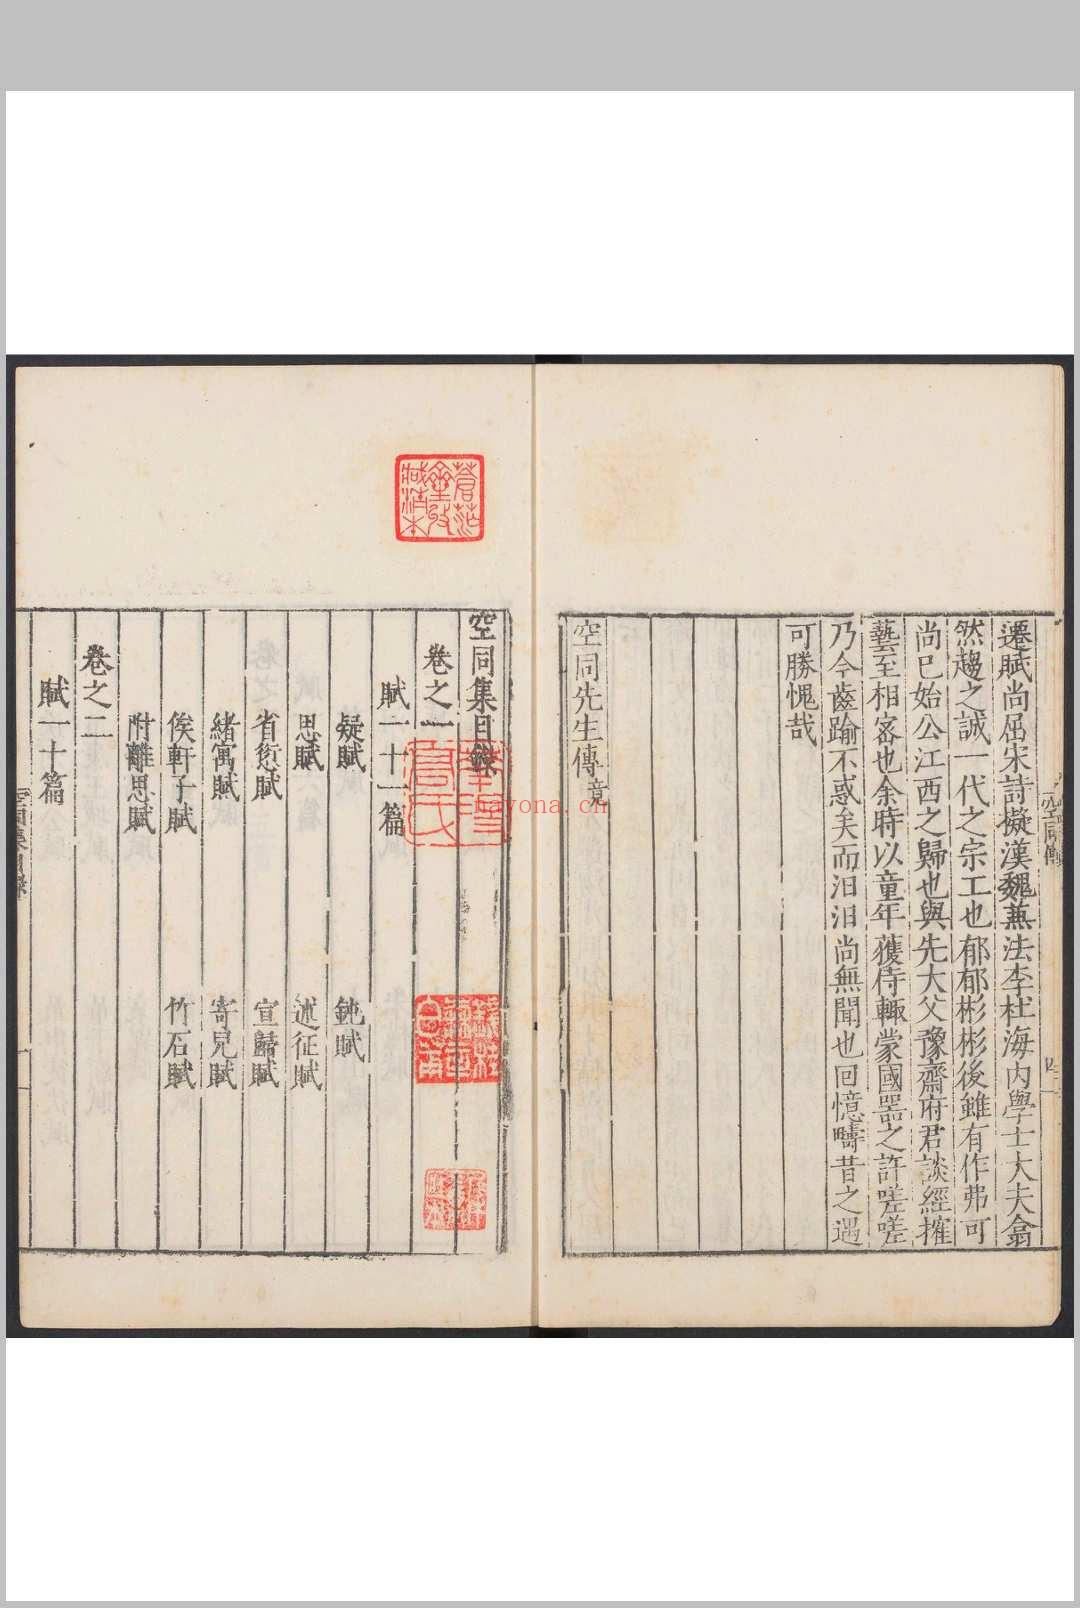 遷賦尚屈宋詩擬漢魏兼法李杜海内學士大夫翕
然趨之誠一代之宗工也郁郁彬彬後雖有作弗可
尚已始公江西之歸也與先大父豫齋府君談經搉
藝至相宻也余時以童年獲侍輙蒙國器之許嗟嗟
乃今齒踰不惑矣而汩汩尚無聞也回憶疇昔之遇
可勝愧哉
空同先生傳竟
空同傳
四
空同集目錄
卷之一
賦一十一篇
疑賦
鈍賦
思賦
述征賦
省愆賦
宣歸賦
緒寓賦
寄兒賦
俟軒子賦
竹石賦
附離思賦
卷之二
賦一十篇
空同集目錄
一
蒼茫齋收藏精本
華陽高氏
hayona.cn